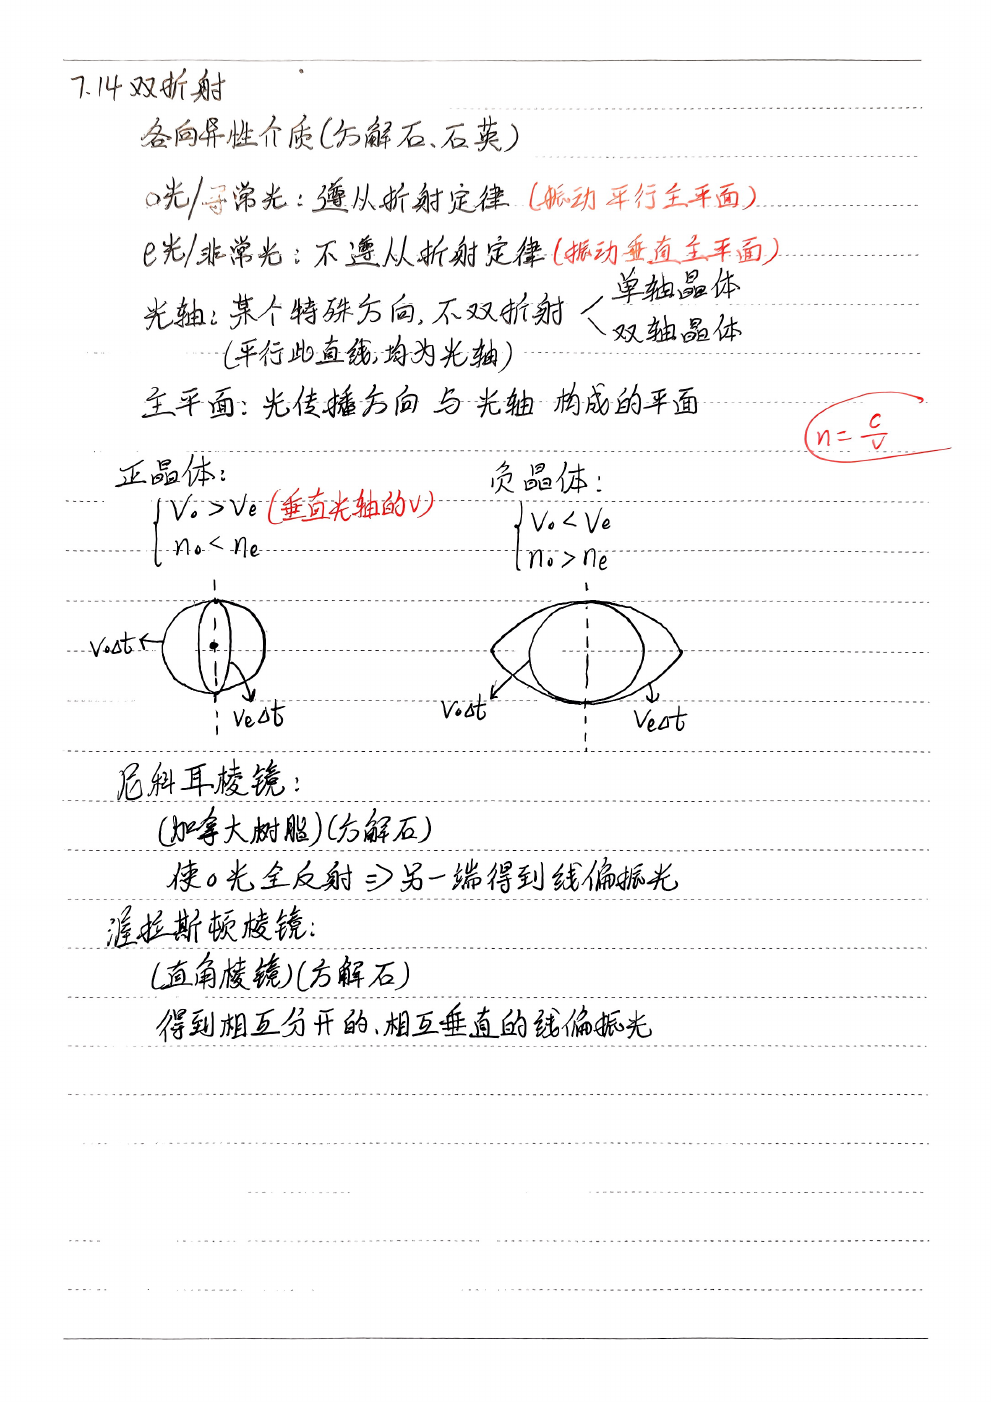 7.14 双折射
各向异性介质(方解石、石英)
o光/寻常光：遵从折射定律 (振动平行主平面)
e光/非常光：不遵从折射定律(振动垂直主平面)
光轴：某个特殊方向,不双折射 < 单轴晶体
双轴晶体
(平行此直线,均为光轴)
主平面：光传播方向 与 光轴 构成的平面
n = c/v
正晶体：
Vo > Ve (垂直光轴的v)
no < ne
负晶体：
Vo < Ve
no > ne
Vo△t
Ve△t
Vo△t
Ve△t
尼科耳棱镜：
(加拿大树脂)(方解石)
使o光全反射 => 另一端得到线偏振光
渥拉斯顿棱镜：
(直角棱镜)(方解石)
得到相互分开的、相互垂直的线偏振光